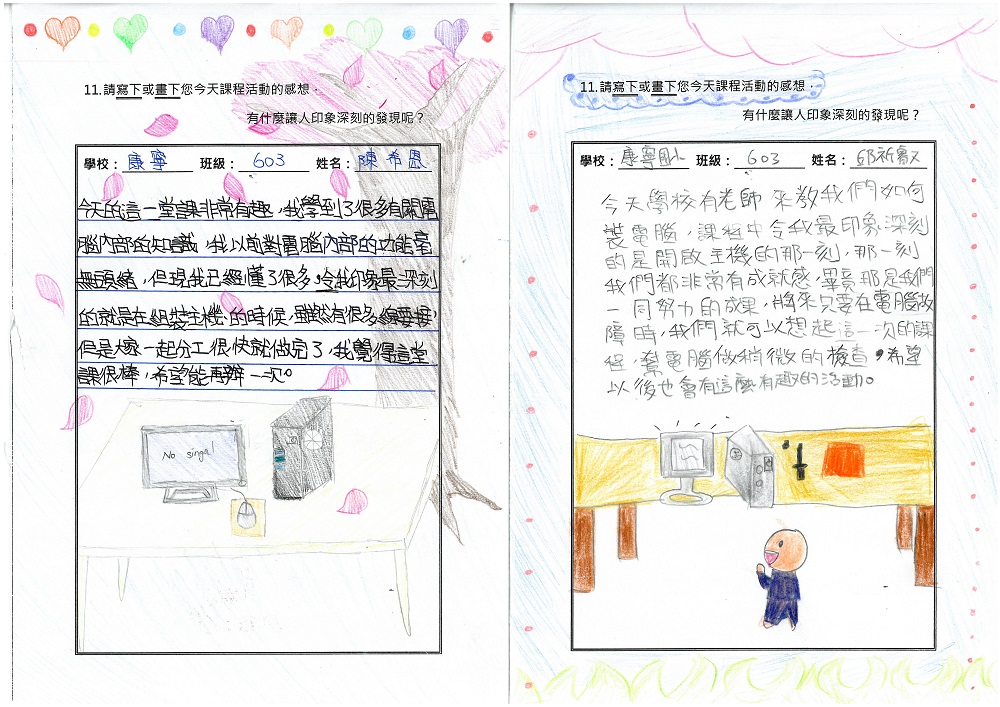 11.請寫下或畫下您今天課程活動的感想。
有什麼讓人印象深刻的發現呢？
學校：康寧 班級：603 姓名：陳希恩
今天的這一堂課非常有趣，我學到了很多有關電
腦內部的知識，我以前對電腦內部的功能毫
無頭緒，但現我已經懂了很多，令我印象最深刻
的就是在組裝主機的時候，雖然有很多線要接，
但是大家一起分工很快就做完了，我覺得這堂
課很棒，希望能再辦一次。
No singal
11.請寫下或畫下您今天課程活動的感想。
有什麼讓人印象深刻的發現呢？
學校：康寧國小 班級：603 姓名：邱祈叡
今天學校有老師來教我們如何
裝電腦，課程中令我最印象深刻
的是開啟主機的那一刻，那一刻
我們都非常有成就感，畢竟那是我們
一同努力的成果，將來只要在電腦故
障時，我們就可以想起這一次的課
程，幫電腦做稍微的檢查，希望
以後也會有這麼有趣的活動。